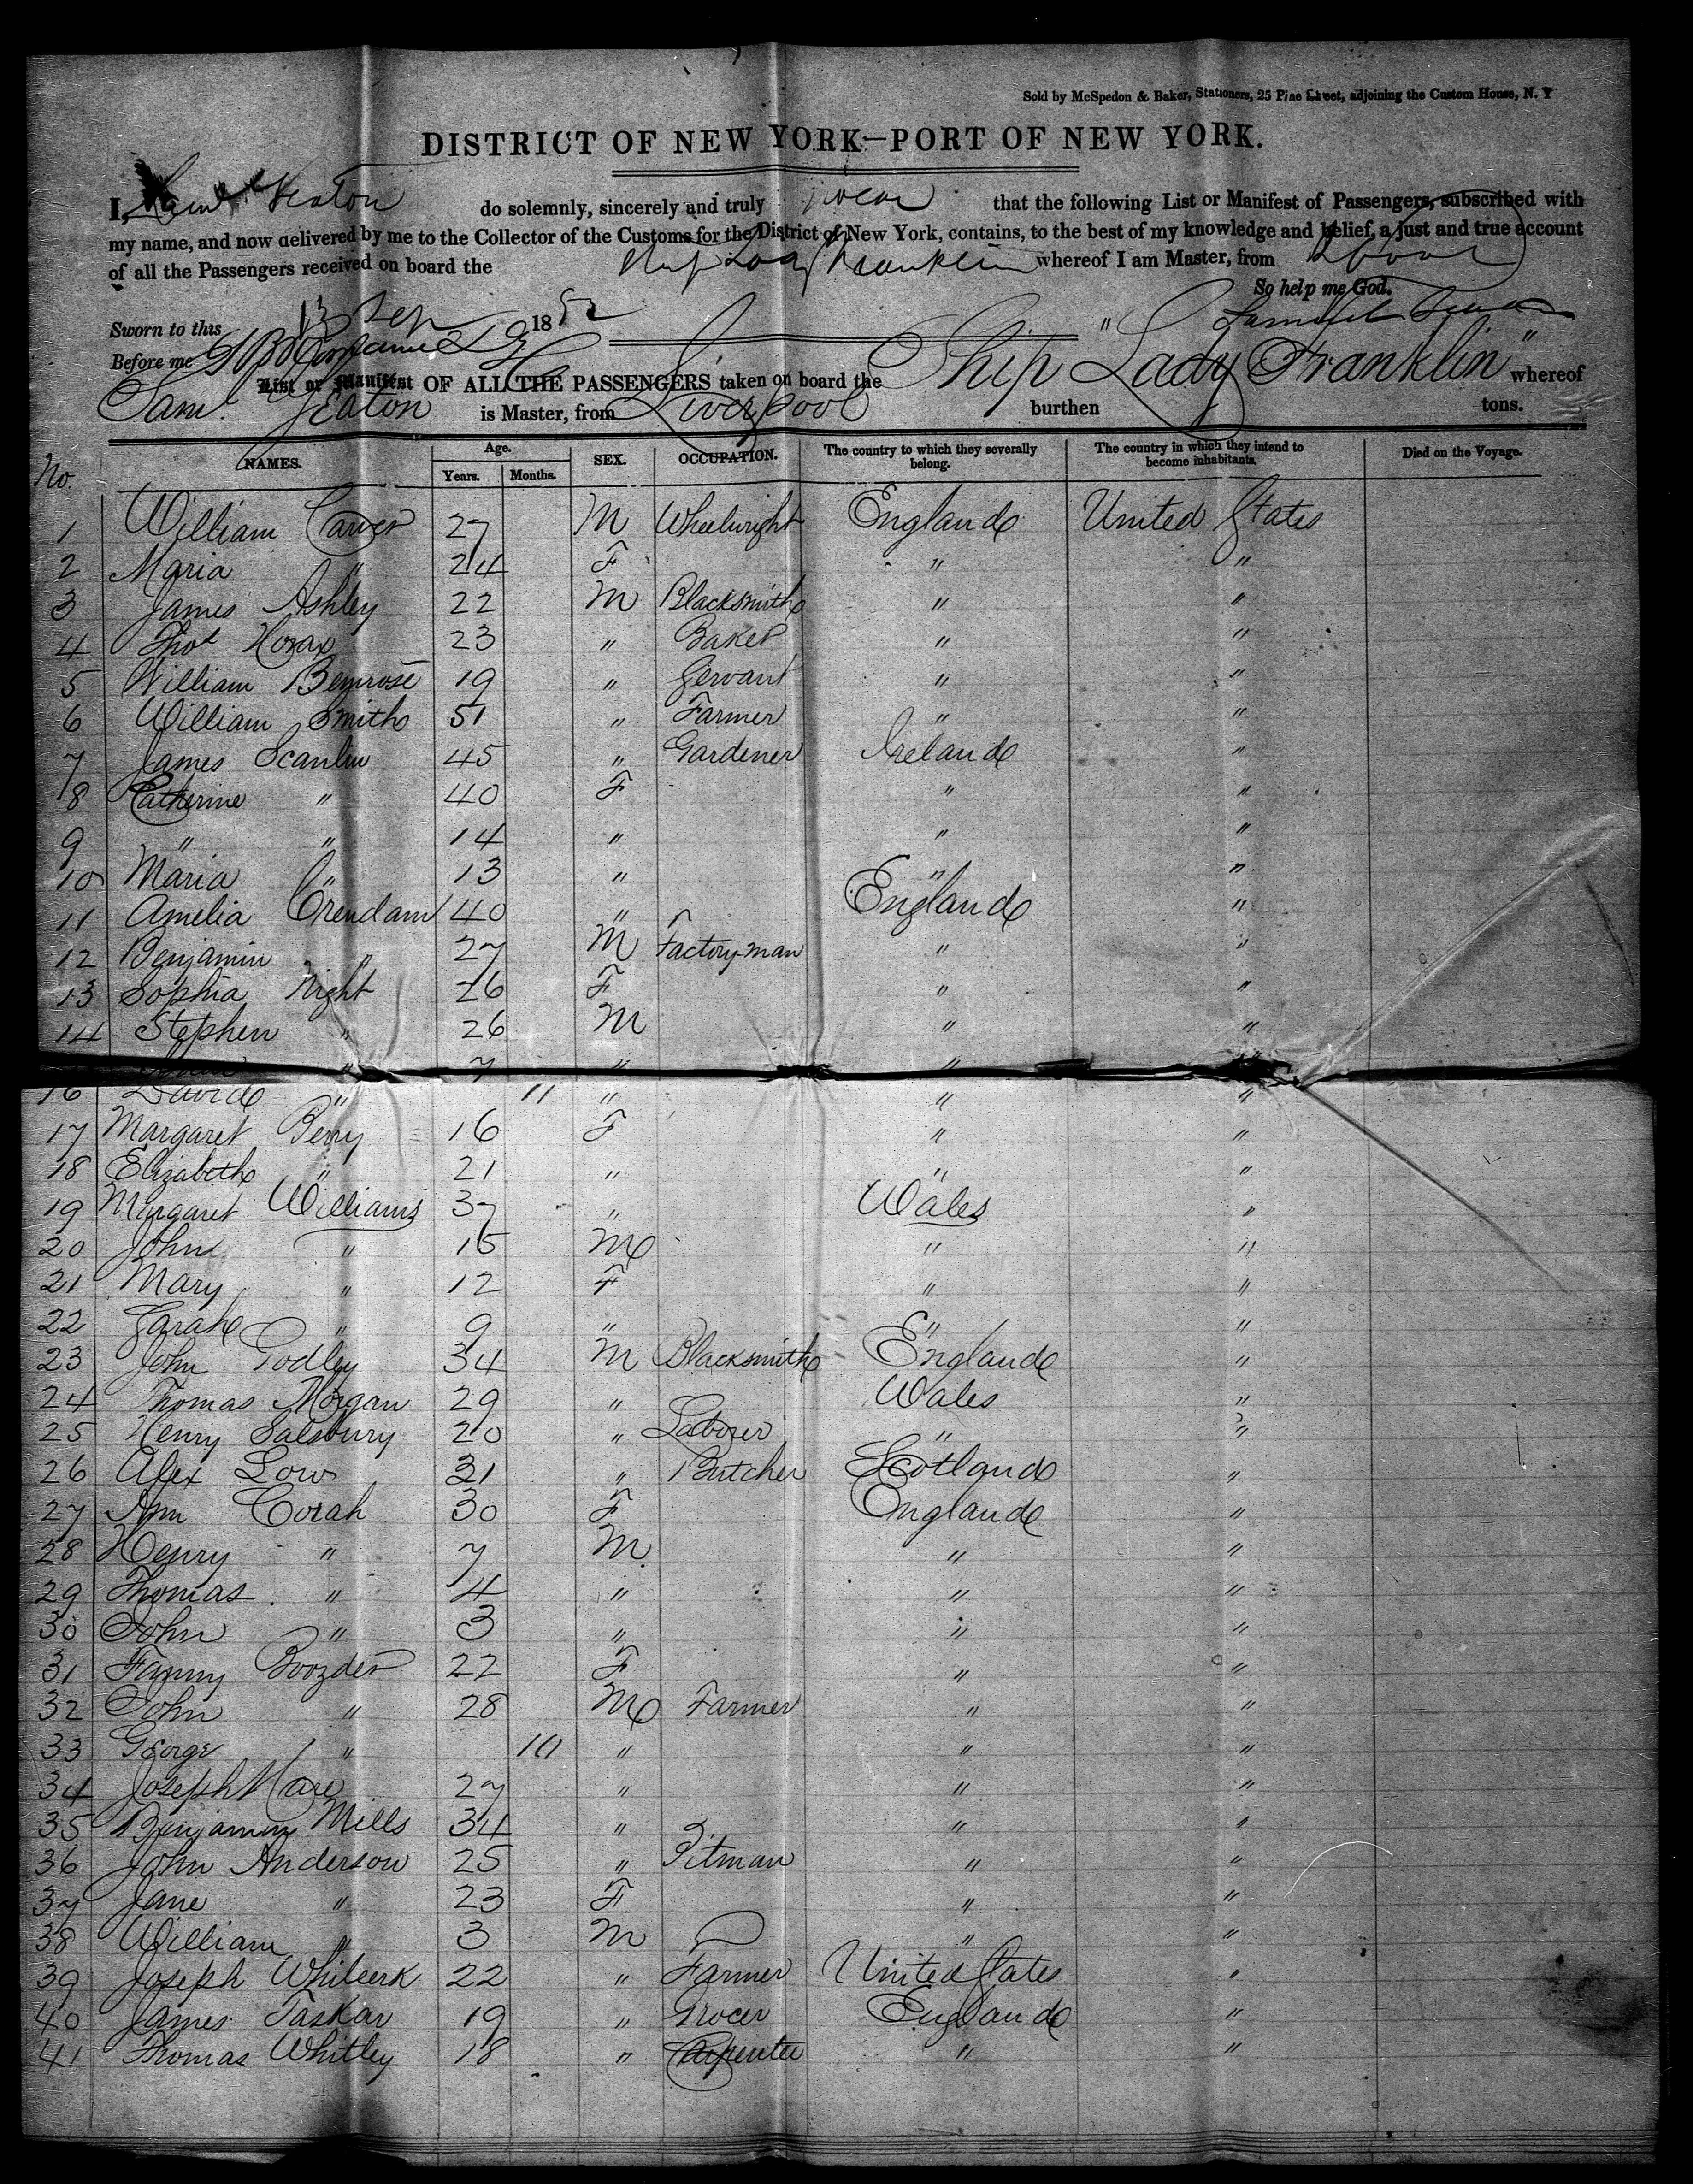 Sold by McSpedon & Baker, Stationers, 25 Pine Street, adjoining the Custom House, N. Y
DISTRICT OF NEW YORK—PORT OF NEW YORK.
I, Saml Yeaton do solemnly, sincerely and truly swear that the following List or Manifest of Passengers, subscribed with
my name, and now delivered by me to the Collector of the Customs for the District of New York, contains, to the best of my knowledge and belief, a just and true account
of all the Passengers received on board the Ship Lady Franklin whereof I am Master, from Lpool
So help me God.
Sworn to this 13 Sep 1852
Before me
List or Manifest OF ALL THE PASSENGERS taken on board the Ship "Lady Franklin" whereof
Saml. Yeaton is Master, from Liverpool burthen tons.
No. NAMES. Age. Years. Months. SEX. OCCUPATION. The country to which they severally belong. The country in which they intend to become inhabitants. Died on the Voyage.
1 William Carver 27 M Wheelwright England United States
2 Maria " 24 F " "
3 James Ashley 22 M Blacksmith " "
4 Thos 23 " Baker " "
5 William Bemrose 19 " Servant " "
6 William Smith 51 " Farmer " "
7 James Scanlin 45 " Gardener Ireland "
8 Catherine " 40 F " "
9 " " 14 " " "
10 Maria " 13 " " "
11 Amelia Crendam 40 " England "
12 Benjamin " 27 M Factory man " "
13 Sophia Night 26 F " "
14 Stephen " 26 M " "
" 7 " "
16 David " 11 " " "
17 Margaret Berry 16 F " "
18 Elizabeth " 21 " " "
19 Margaret Williams 37 " Wales "
20 John " 15 M " "
21 Mary " 12 F " "
22 Sarah " 9 " " "
23 John Godley 34 M Blacksmith England "
24 Thomas Morgan 29 " Wales "
25 Henry Salsbury 20 " Laborer " "
26 Alex Low 31 " Butcher Scotland "
27 Ann Corah 30 F England "
28 Henry " 7 M " "
29 Thomas " 4 " " "
30 John " 3 " " "
31 Fanny Boozder 22 F " "
32 John " 28 M Farmer " "
33 George " 10 " " "
34 Joseph Hare 27 " " "
35 Benjamin Mills 34 " " "
36 John Anderson 25 " Pitman " "
37 Jane " 23 F " "
38 William " 3 M " "
39 Joseph 22 " Farmer United States "
40 James Taskar 19 " Grocer England "
41 Thomas Whitley 18 " Carpenter " "